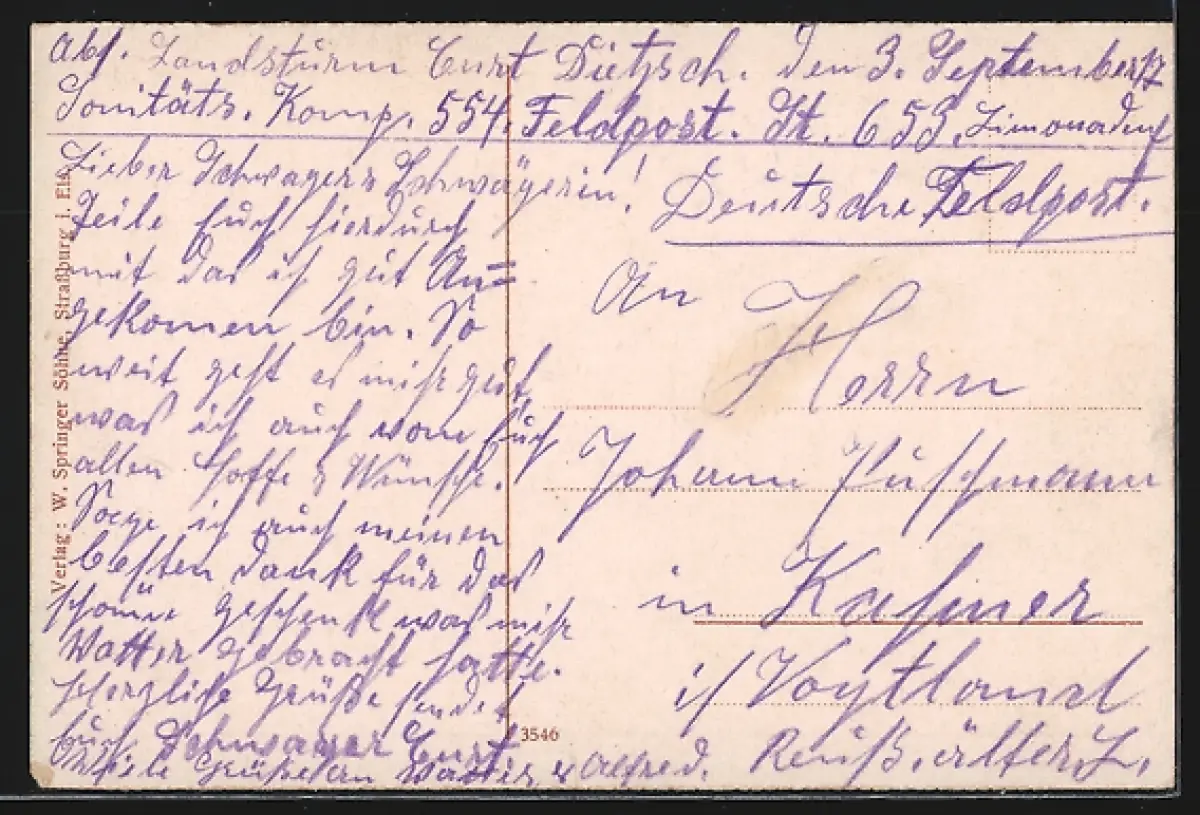 Abs. Landsturm Curt Dietzsch. Den 3. September 17
Sanitäts. Komp. 554. Feldpost. St. 653.
Lieber Schwager & Schwägerin!
Teile Euch hierdurch
mit das ich gut An=
gekomen bin. So
weit geht es mir gut,
was ich auch vom Euch
allen hoffe & Wünsche.
Sage ich auch meinen
besten Dank für das
schöne geschenk was mihr
Vatter gebracht hatte.
Herzliche Grüße sendet
Euch Schwager Curt
Viele Grüße an & Alfred.
Deutsche Feldpost.
An
Herrn
Johann Puschmann
in
i/ Vogtland
Reuß. älter. L.
Verlag: W. Springer Söhne, Straßburg i. Els.
3546